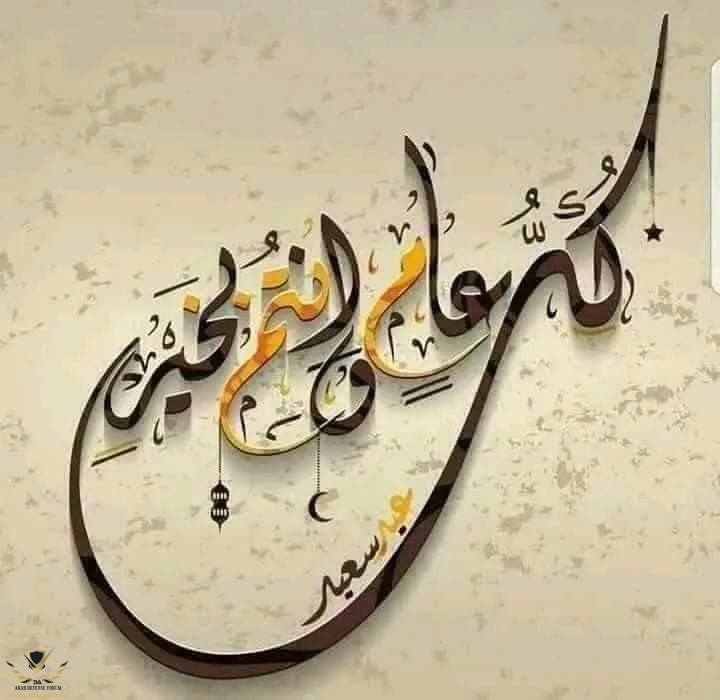 كُلُّ عَامٍ وَانتم بِخَيْرٍ
عيد سعيد
DA
ARAB DEFENSE FORUM